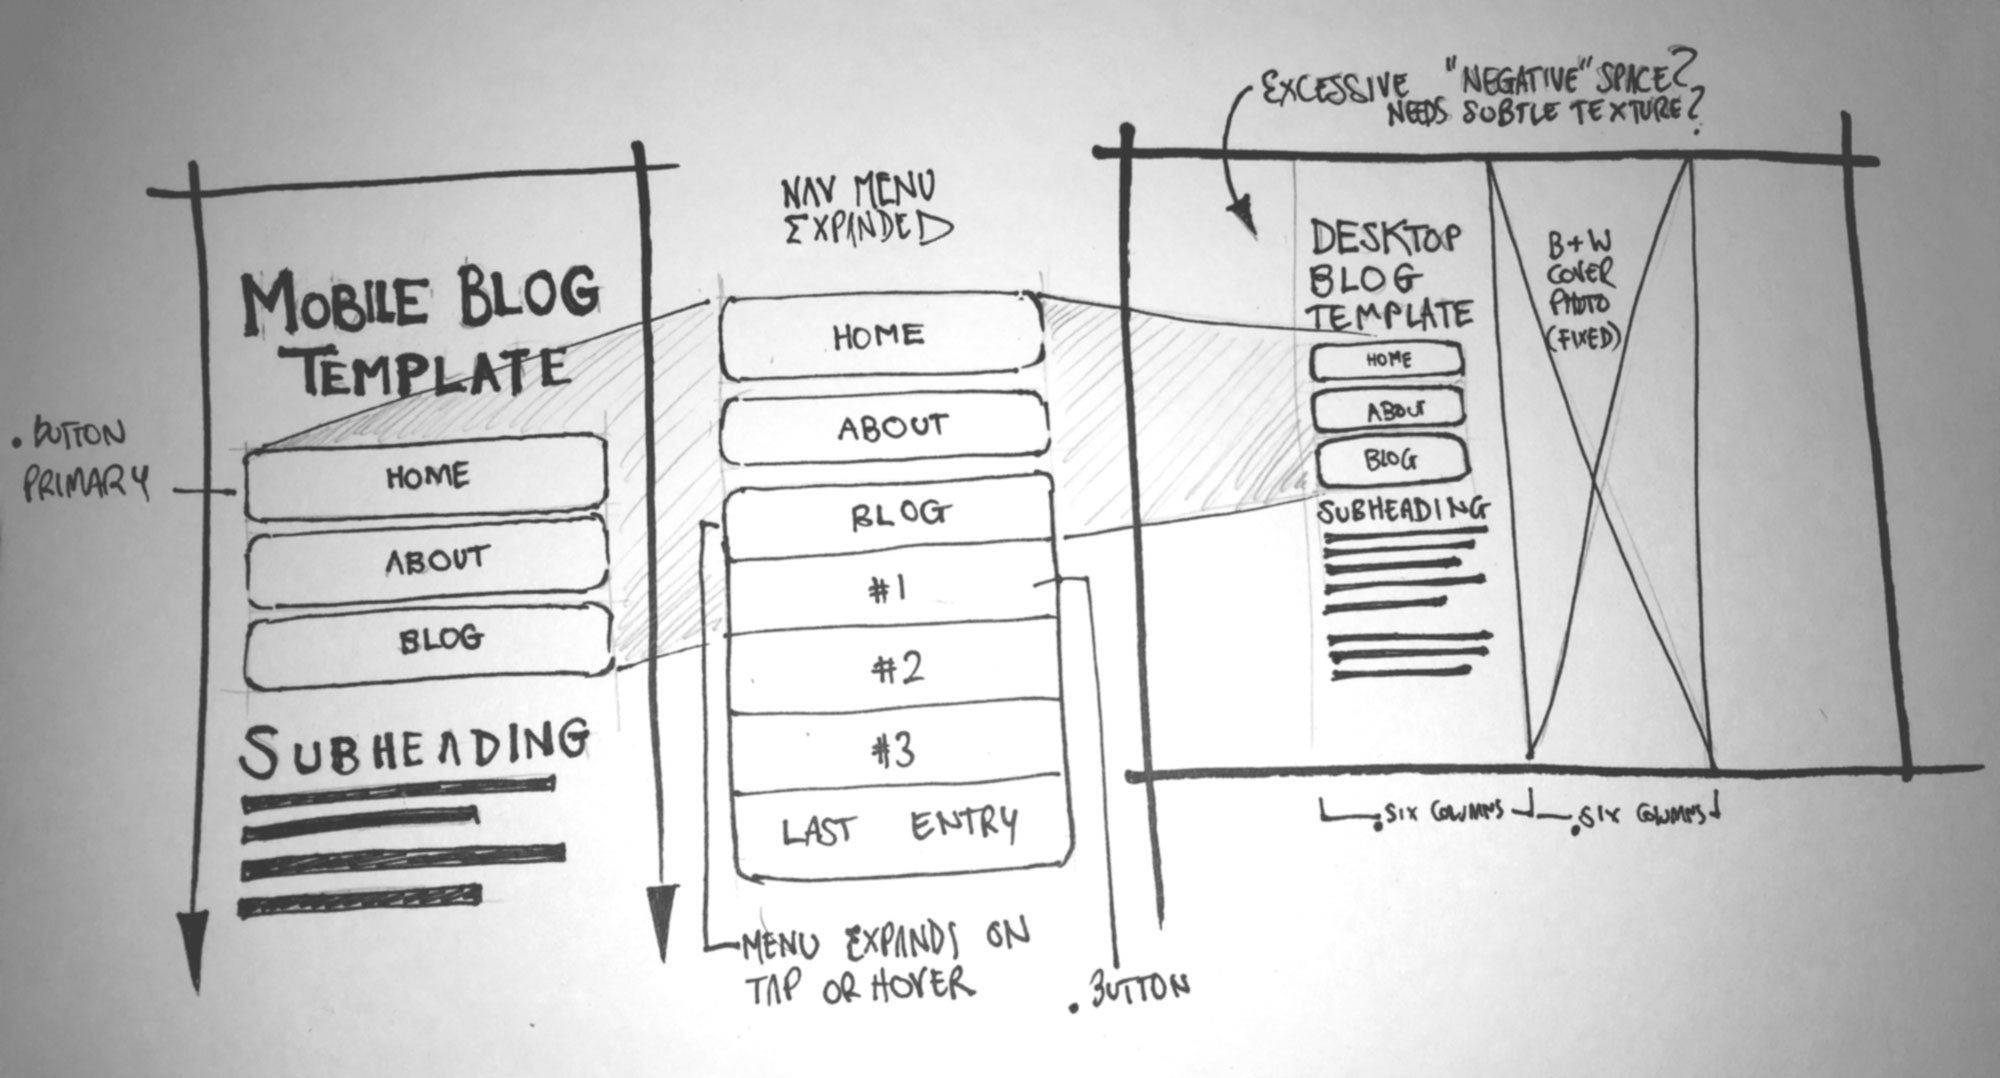 MOBILE BLOG
TEMPLATE
.BUTTON
PRIMARY
HOME
ABOUT
BLOG
SUBHEADING
NAV MENU
EXPANDED
HOME
ABOUT
BLOG
#1
#2
#3
LAST ENTRY
MENU EXPANDS ON
TAP OR HOVER
.BUTTON
EXCESSIVE "NEGATIVE" SPACE?
NEEDS SUBTLE TEXTURE?
DESKTOP
BLOG
TEMPLATE
HOME
ABOUT
BLOG
SUBHEADING
B+W
COVER
PHOTO
(FIXED)
.SIX COLUMNS
.SIX COLUMNS